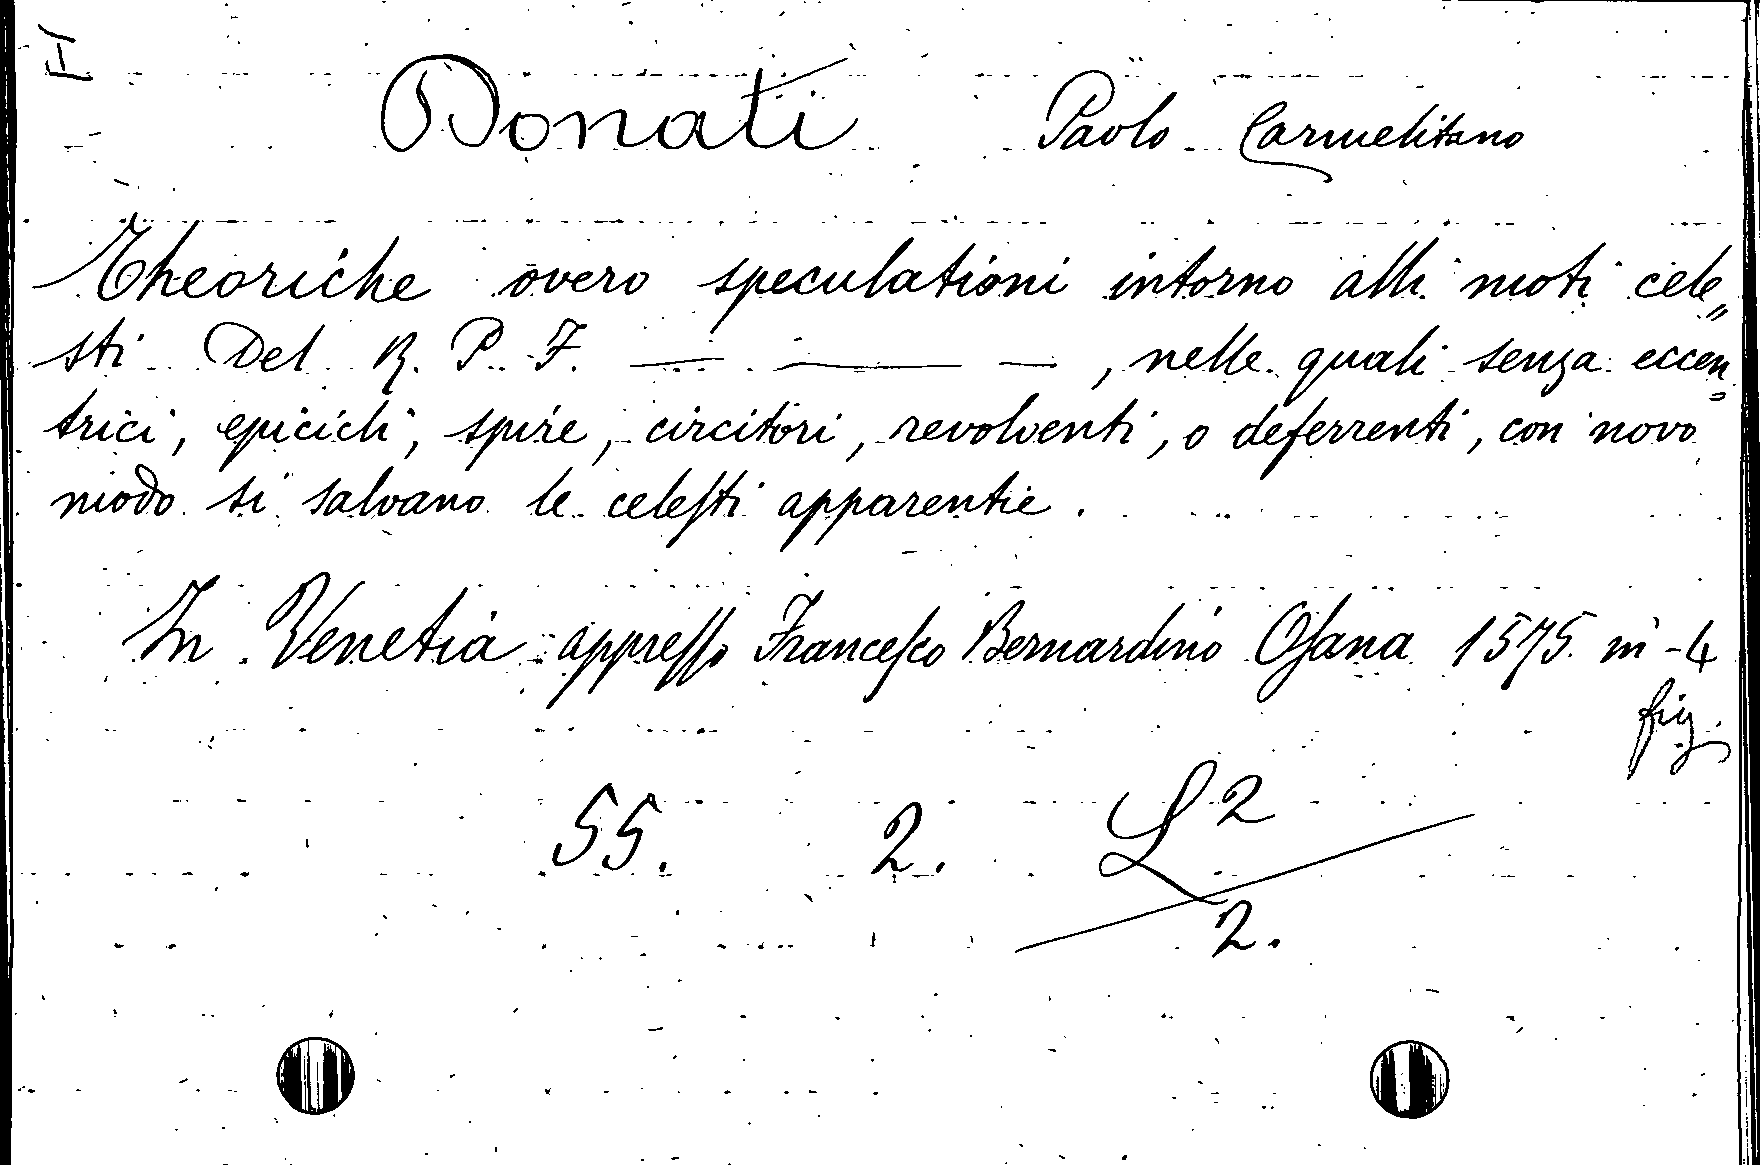 Donati Paolo Carmelitano
Theoriche overo speculationi intorno alli moti cele„
sti Del R. P. F. — — —, nelle quali senza eccen„
trici, epicicli, spire, circitori, revolventi, o deferrenti, con novo
modo si salvano le celeſti apparentie.
In Venetia appreſſo Franceſco Bernardino Oſana 1575. in-4
fig.
55. 2. L 2
2.